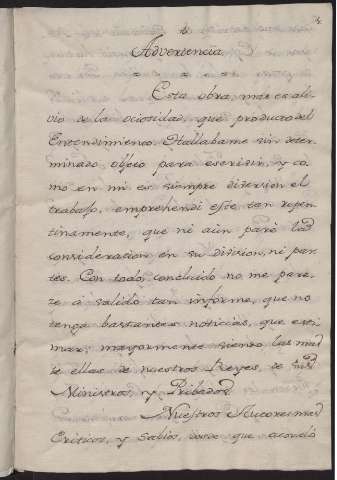 Advertencia
Esta obra, mas es ali-
vio de la ociosidad, que producto del
Entendimiento. Hallabame sin deter-
minado objeto para escribir, y co-
mo en mi es siempre diversion el
trabajo, emprehendi este tan repen-
tinamente, que ni aùn parè la
consideracion en su division, ni par-
tes. Con todo, concluido no me pare-
ze à salido tan informe, que no
tenga bastantes noticias, que esti-
mar; mayormente siendo las mas
de ellas de nuestros Reyes, de sus
Ministros, y Pribados
Nuestros Autores mas
Criticos, y Sabios, desde que